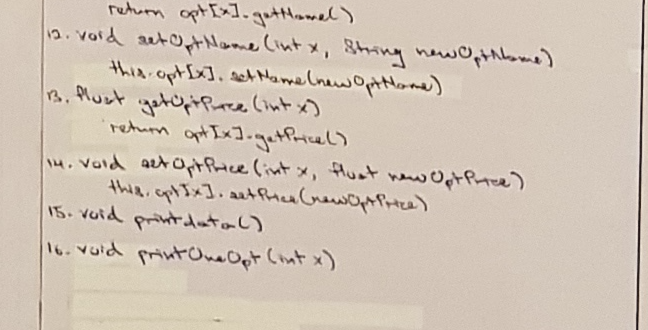 return opt[x].getName()
12. void setOptName(int x, String newOptName)
this.opt[x].setName(newOptName)
13. float getOptPrice(int x)
return opt[x].getPrice()
14. void setOptPrice(int x, float newOptPrice)
this.opt[x].setPrice(newOptPrice)
15. void printdata()
16. void printOneOpt(int x)